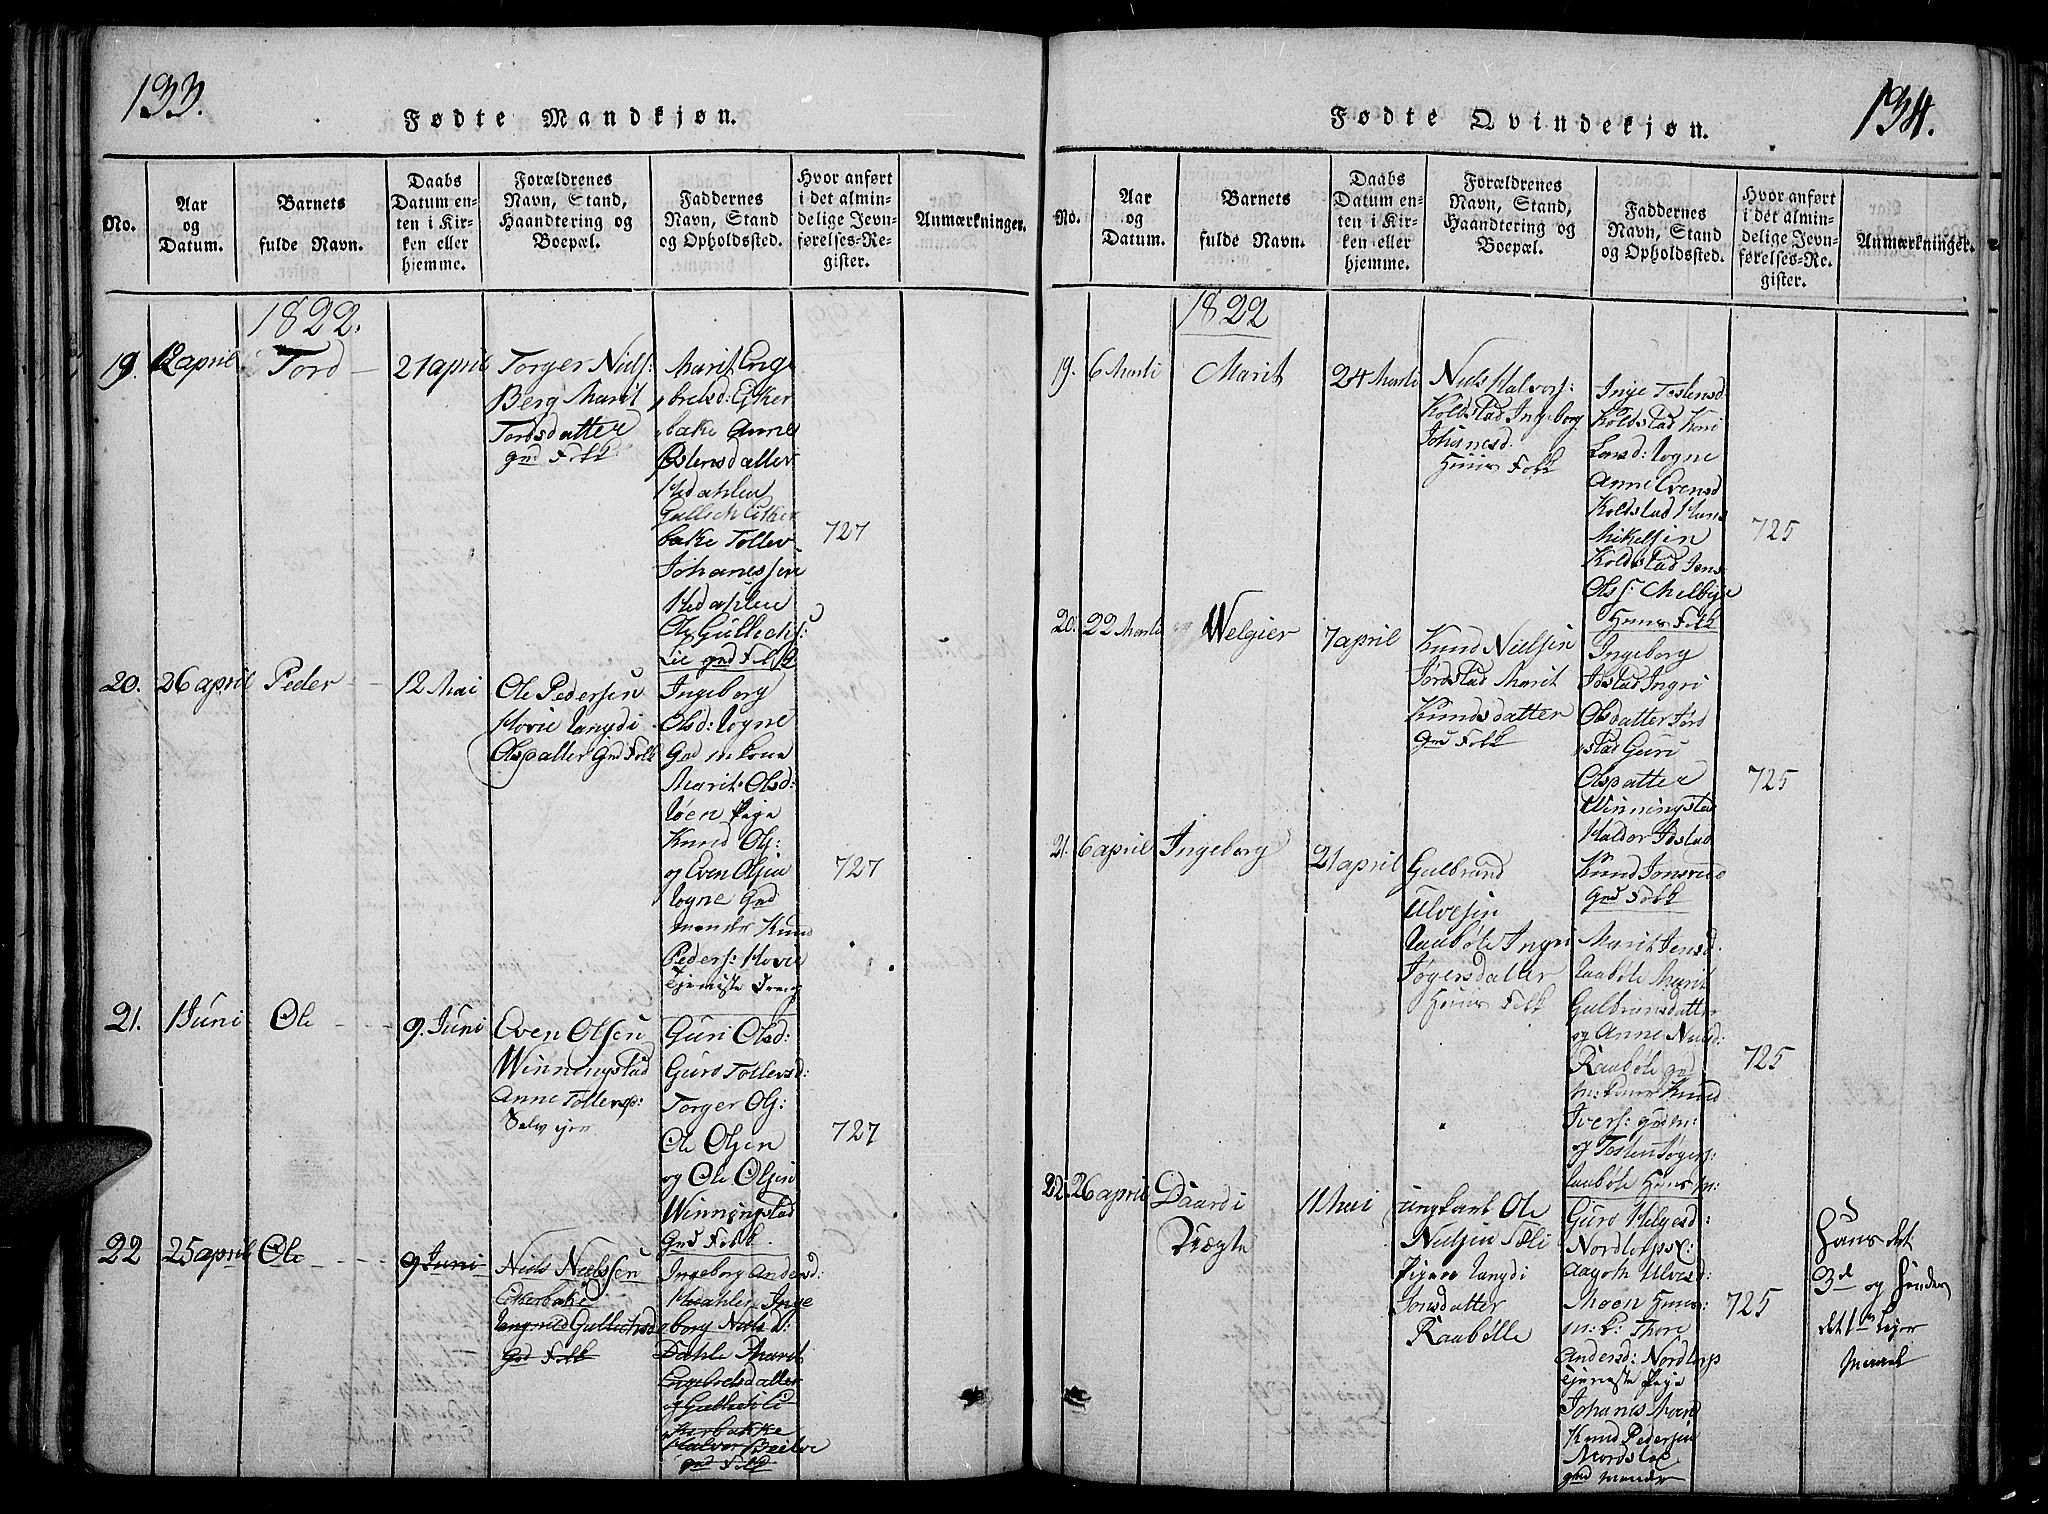 133.
Fødte Mandkjøn.
No.
Aar
og
Datum.
Barnets
fulde Navn.
Daabs
Datum en-
ten i Kir-
ken eller
hjemme.
Forældrenes
Navn, Stand,
Haandtering og
Boepæl.
Faddernes
Navn, Stand
og Opholdssted.
Hvor anført
i det almin-
delige Jevn-
førelses-Re-
gister.
Anmærkninger.
1822.
19. 12 april Tord 21 april
Torger Niels:
Berg Marit
Tordsdatter
gmd Folk
Marit Enge
brelsd: Eker
bake Anne
Østensdatter
Hedahlen
Gullech Eker
bake Tollev
Johanessen
Hedahlen
Ole Gullechs:
Lie gmd Folk
727
20. 26 april Peder 12 Mai
Ole Pedersen
Hovie Langdi
Olsdatter Gmd Folk
Ingeborg
Olsd: Logne
Gmd m kone
Marit Olsd:
Løen Pige
Knud Ols:
og Even Olsen
Logne Gmd
mænder Knud
Peders: Hovie
Tjeniste Dreng
727
21. 1 Juni Ole 9. Juni
Even Olsen
Winningstad
Anne Tollevsd:
Selv ejer
Guri Olsd:
Guro Tollevsd:
Torger Ols:
Ole Olsen
og Ole Olsen
Winningstad
Gmd Folk.
727
22 25 april Ole 9 Juni
Niels Nielssen
Ekerbake
Langrid Gullichsd
Gmd Folk
Ingeborg Andersd:
Hedahlen Inge
borg Nielsd:
Dahle Marit
Engebretsdatter
og Gulbrand
Ekerbakke
Halvor Beitve
gmd Folk
134.
Fødte Qvindekjøn.
No.
Aar
og
Datum.
Barnets
fulde Navn.
Daabs
Datum en-
ten i Kir-
ken eller
hjemme.
Forældrenes
Navn, Stand,
Haandtering og
Boepæl.
Faddernes
Navn, Stand
og Opholdssted.
Hvor anført
i det almin-
delige Jevn-
førelses-Re-
gister.
Anmærkninger.
1822
19. 6 Marti Marit 24 Marti
Niels Halvors:
Koldstad Ingeborg
Johanesd.
Huus Folk
Inge Tostensd:
Koldstad Kari
Larsd: Logne
Anne Evensd
Koldstad Hans
Mikelsen
Koldstad Jens
Olss: Melbye
Huus Folk
725
20. 22 Marti Welgier 7 april
Knud Nielsen
Jordstad Marit
Knudsdatter
Gmd Folk
Ingeborg
Jøstad Ingri
Olsdatter Jord
stad Guri
Olsdatter
Winningstad
Haldor Jøstad
Knud Jonsrud
Gmd Folk
725
21. 6 april Ingeborg 21 april
Gulbrand
Ulvesen
Raabøle Ingri
Jøgersdatter
Huus Folk
Marit Jensd.
Raabøle Marit
Gulbransdatter
og Anne Nielsd:
Raabøle gmd
m: koner Knud
Ivers: gmd m:
og Tosten Jøgers:
Raabøle Huus m:
725
22. 26 april Daardi 11 Mai
Ungkarl Ole
Nielsen
Pigen Langdi
Jonsdatter
Raabølle
Guro Helgesd:
Nordtorps E:
Aagoth Ulvesd:
Moen Huus:
m: k: Thore
Andersd: Nordtorp
Tjeneste Pige
Johanes Moen
Knud Pedersen
Gmd mænder
725
Hans det
3d og hendes
det 1te Lejer
maal